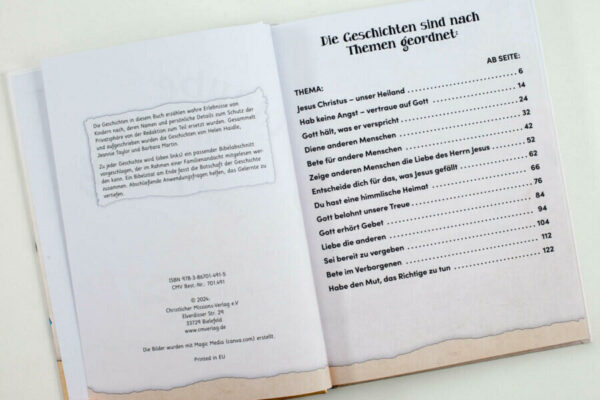 Die Geschichten in diesem Buch erzählen wahre Erlebnisse von
Kindern nach, deren Namen und persönliche Details zum Schutz der
Privatsphäre von der Redaktion zum Teil ersetzt wurden. Gesammelt
und aufgeschrieben wurden die Geschichten von Helen Haidle,
Jeannie Taylor und Barbara Martin.
Zu jeder Geschichte wird (oben links) ein passender Bibelabschnitt
vorgeschlagen, der im Rahmen einer Familienandacht mitgelesen wer-
den kann. Ein Bibelzitat am Ende fasst die Botschaft der Geschichte
zusammen. Abschließende Anwendungsfragen helfen, das Gelernte zu
vertiefen.
ISBN 978-3-86701-491-5
CMV Best.-Nr.: 701.491
© 2024
Christlicher Missions-Verlag e.V
Elverdisser Str. 29
33729 Bielefeld
www.cmverlag.de
Die Bilder wurden mit Magic Media (canva.com) erstellt.
Printed in EU
Die Geschichten sind nach
Themen geordnet:
THEMA: AB SEITE:
Jesus Christus – unser Heiland 6
Hab keine Angst – vertraue auf Gott 14
Gott hält, was er verspricht 24
Diene anderen Menschen 32
Bete für andere Menschen 42
Zeige anderen Menschen die Liebe des Herrn Jesus 52
Entscheide dich für das, was Jesus gefällt 62
Du hast eine himmlische Heimat 66
Gott belohnt unsere Treue 76
Gott erhört Gebet 84
Liebe die anderen 94
Sei bereit zu vergeben 104
Bete im Verborgenen 112
Habe den Mut, das Richtige zu tun 122